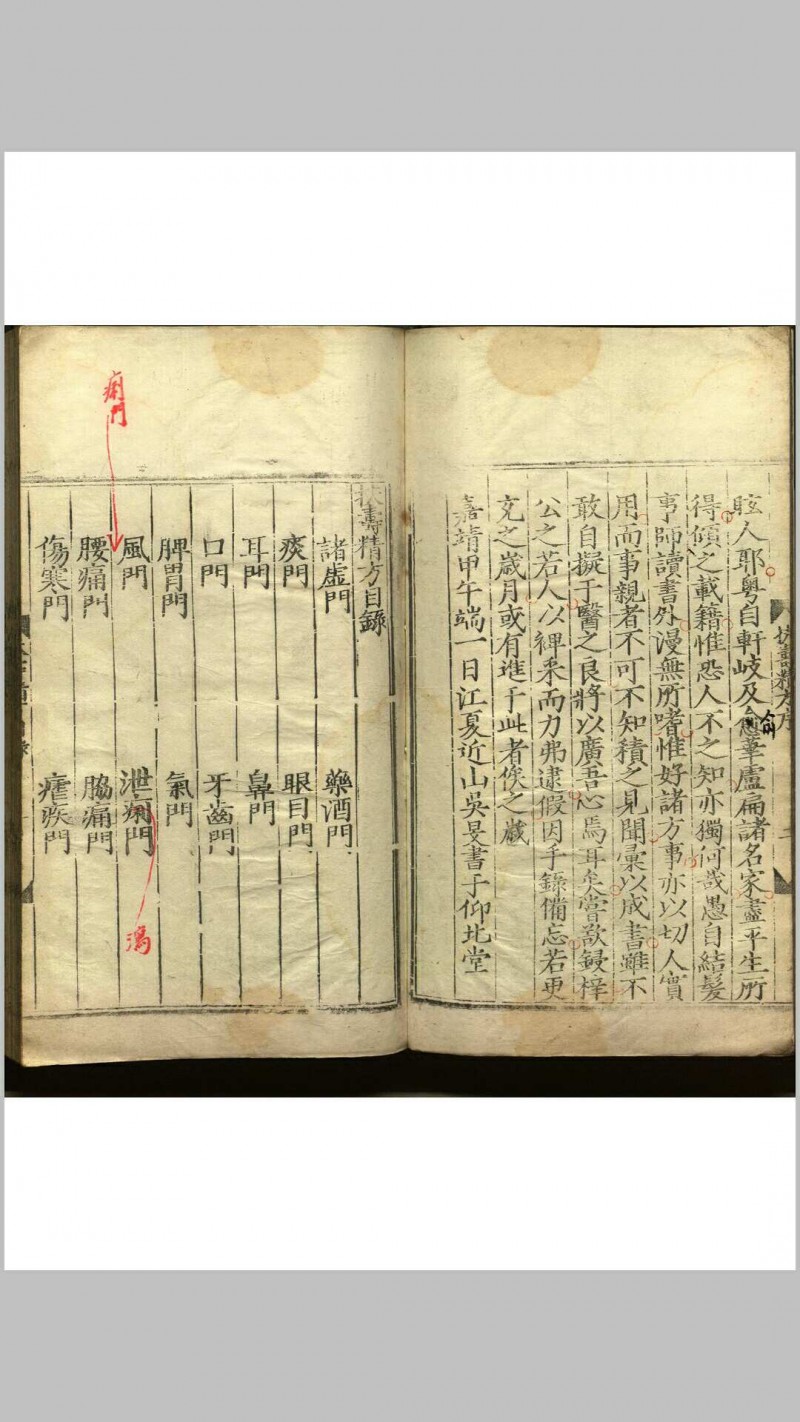 眩人耶粤自軒岐及愈華盧扁諸名家盡平生所
得傾之載籍惟恐人不之知亦獨何哉愚自結髮
事師讀書外漫無所嗜惟好諸方事亦以切人實
用而事親者不可不知積之見聞彙以成書雖不
敢自擬于醫之良將以廣吾心焉耳矣嘗欲鋟梓
公之若人以裨采而力弗逮假因手錄備忘若更
充之歲月或有進于此者俟之歲
嘉靖甲午端一日江夏近山吳旻書于仰北堂
扶壽精方序
俞
二
扶壽精方目錄
諸虛門 藥酒門
痰門 眼目門
耳門 鼻門
口門 牙齒門
脾胃門 氣門
風門 泄痢門
腰痛門 脇痛門
傷寒門 瘧疾門
痢門
瀉